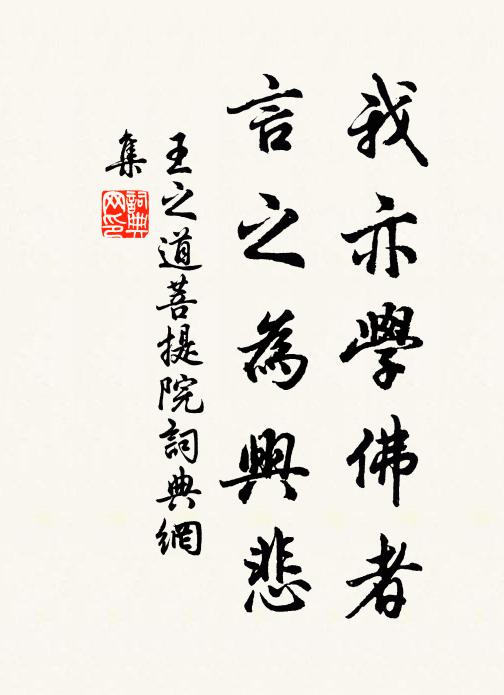 我亦學佛者
言之為興悲
王之道菩提院詞典網
集
詞典
网印